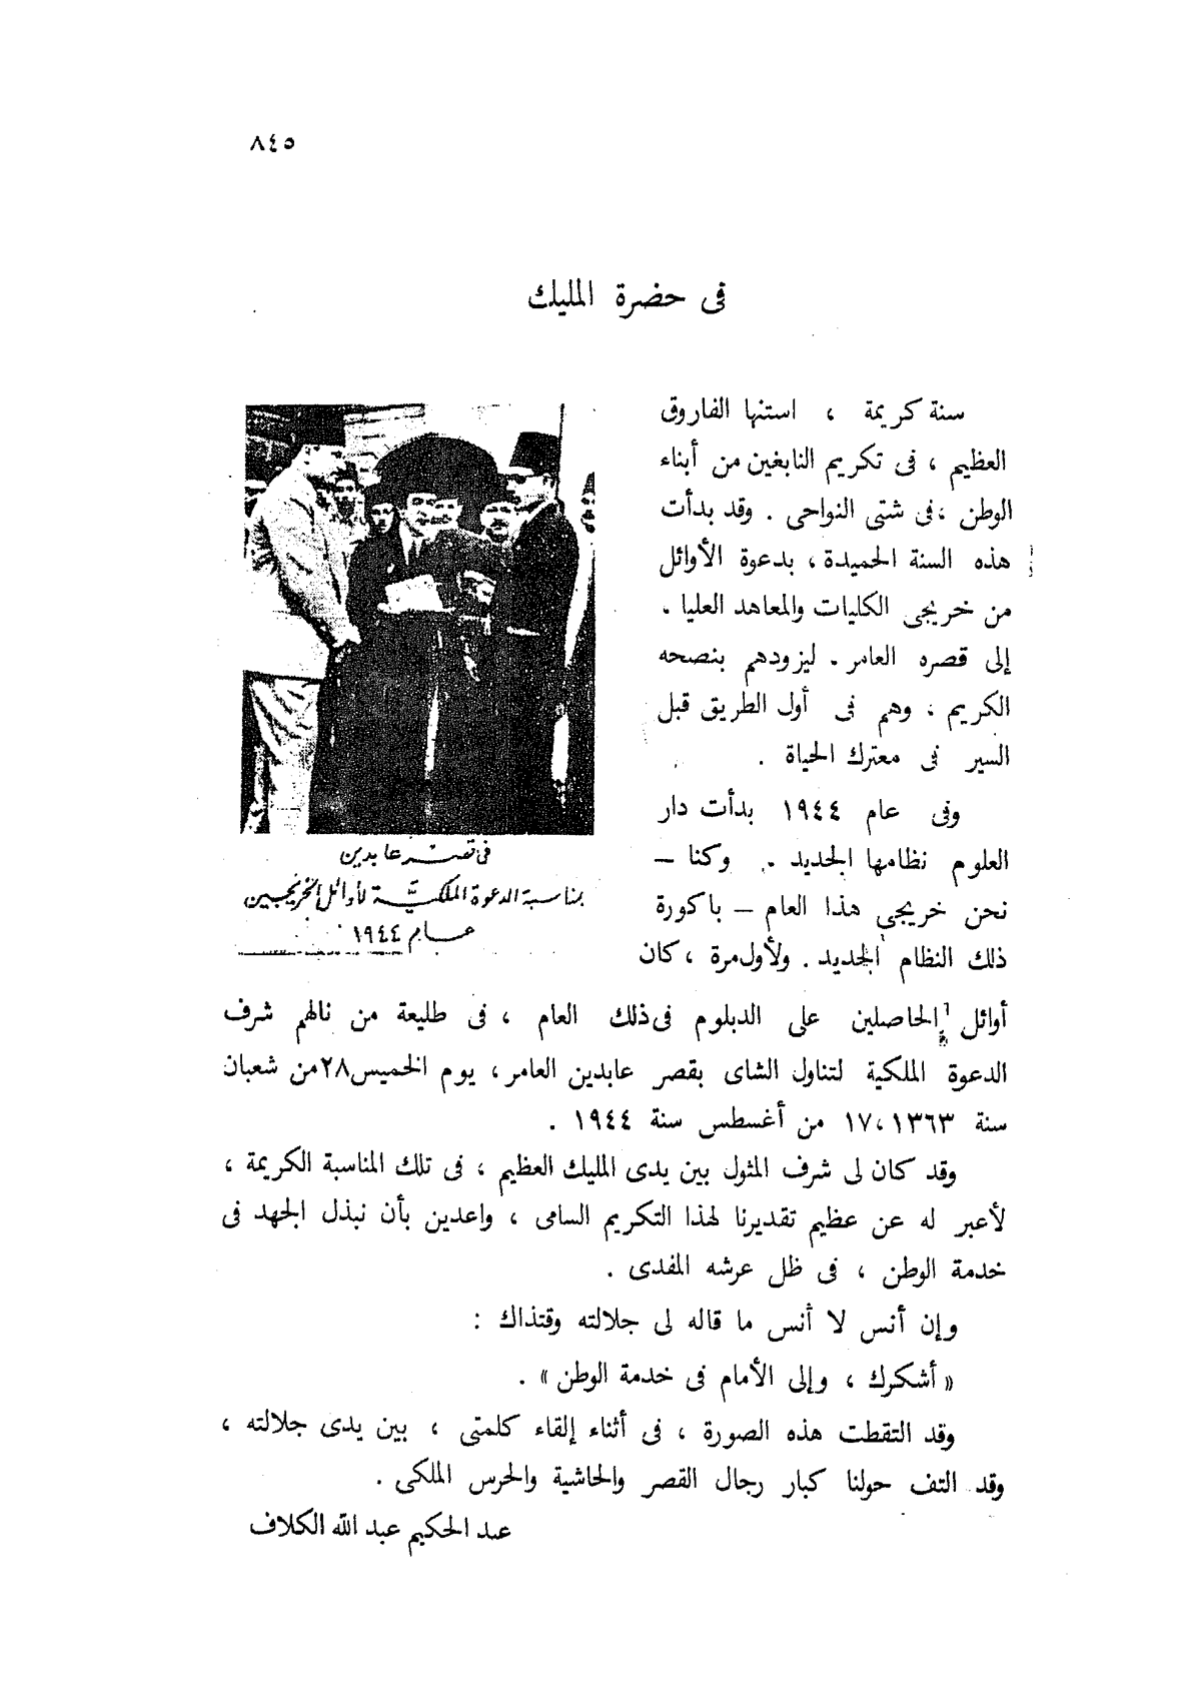 ٨٤٥
فى حضرة المليك
سنة كريمة ، استنها الفاروق
العظيم ، فى تكريم النابغين من أبناء
الوطن ، فى شتى النواحى . وقد بدأت
هذه السنة الحميدة ، بدعوة الأوائل
من خريجى الكليات والمعاهد العليا .
إلى قصره العامر . ليزودهم بنصحه
الكريم ، وهم فى أول الطريق قبل
السير فى معترك الحياة .
وفى عام ١٩٤٤ بدأت دار
العلوم نظامها الجديد . وكنا —
نحن خريجى هذا العام — باكورة
ذلك النظام الجديد . ولأول مرة ، كان
فى قصر عابدين
بمناسبة الدعوة الملكية لأوائل الخريجيين
عام ١٩٤٤
أوائل الحاصلين على الدبلوم فى ذلك العام ، فى طليعة من نالهم شرف
الدعوة الملكية لتناول الشاى بقصر عابدين العامر ، يوم الخميس ٢٨ من شعبان
سنة ١٣٦٣ ، ١٧ من أغسطس سنة ١٩٤٤ .
وقد كان لى شرف المثول بين يدى المليك العظيم ، فى تلك المناسبة الكريمة ،
لأعبر له عن عظيم تقديرنا لهذا التكريم السامى ، واعدين بأن نبذل الجهد فى
خدمة الوطن ، فى ظل عرشه المفدى .
وإن أنس لا أنس ما قاله لى جلالته وقتذاك :
« أشكرك ، وإلى الأمام فى خدمة الوطن » .
وقد التقطت هذه الصورة ، فى أثناء إلقاء كلمتى ، بين يدى جلالته ،
وقد التف حولنا كبار رجال القصر والحاشية والحرس الملكى .
عبد الحكيم عبد الله الكلاف